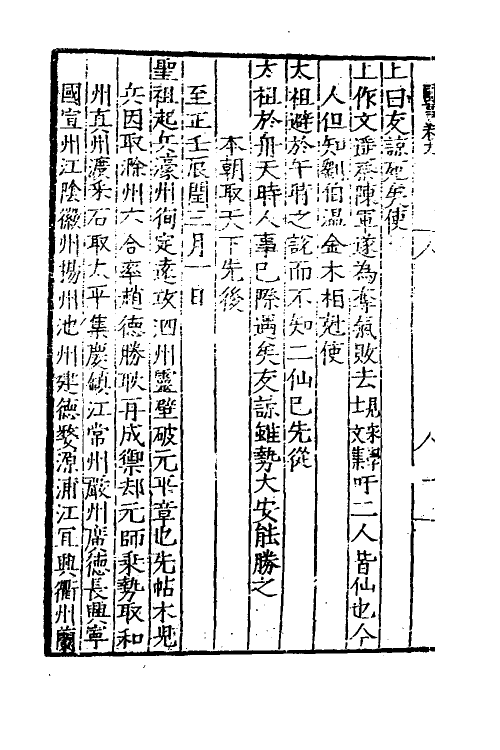 上曰友諒死矣使
上作文遥祭陳軍遂為奪氣敗去見宋學士文集吁二人皆仙也今
人但知劉伯温金木相尅使
太祖避於午前之說而不知二仙已先從
太祖於舟天時人事已際遇矣友諒雖勢大安能勝之
本朝取天下先後
至正壬辰閏三月一日
聖祖起兵濠州徇定遠攻泗州靈壁破元平章也先帖木児
兵因取滁州六合率趙德勝耿再成禦却元師乘勢取和
州真州濟采石取太平集慶鎮江常州嚴州廣德長興寧
國宣州江陰徽州揚州池州建德婺源浦江宜興衢州蘭